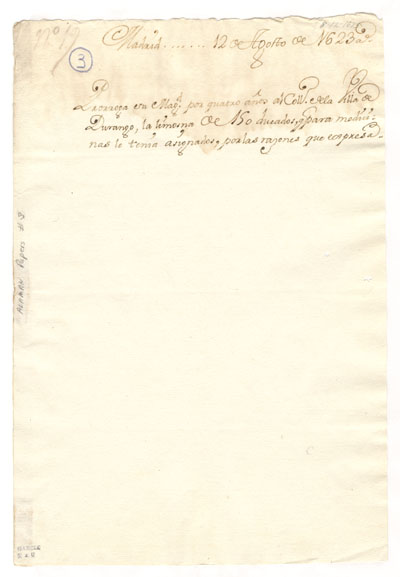 nº 19
3
Madrid....... 12 de Agosto de 1623 as.
Prorroga su Magd. por quatro años al Coll. de la Villa de
Durango, la limosna de 150 ducados, q para medici-
nas le tenia asignados, por las razones que expresa
Papers # 3